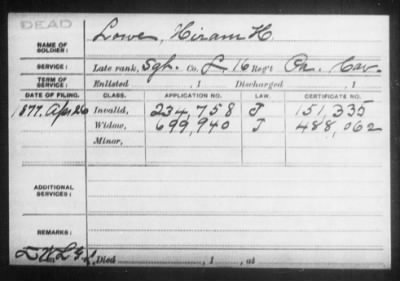 DEAD
NAME OF SOLDIER: Lowe, Hiram H
SERVICE: Late rank, Sgt. Co. L 16 Reg't Pa. Cav.
TERM OF SERVICE: Enlisted , 1 Discharged , 1
DATE OF FILING. CLASS. APPLICATION NO. LAW. CERTIFICATE NO.
1877. Apr. 26 Invalid, 234,758 J 151,335
Widow, 699,940 J 488,062
Minor,
ADDITIONAL SERVICES:
REMARKS:
Died , 1 , at